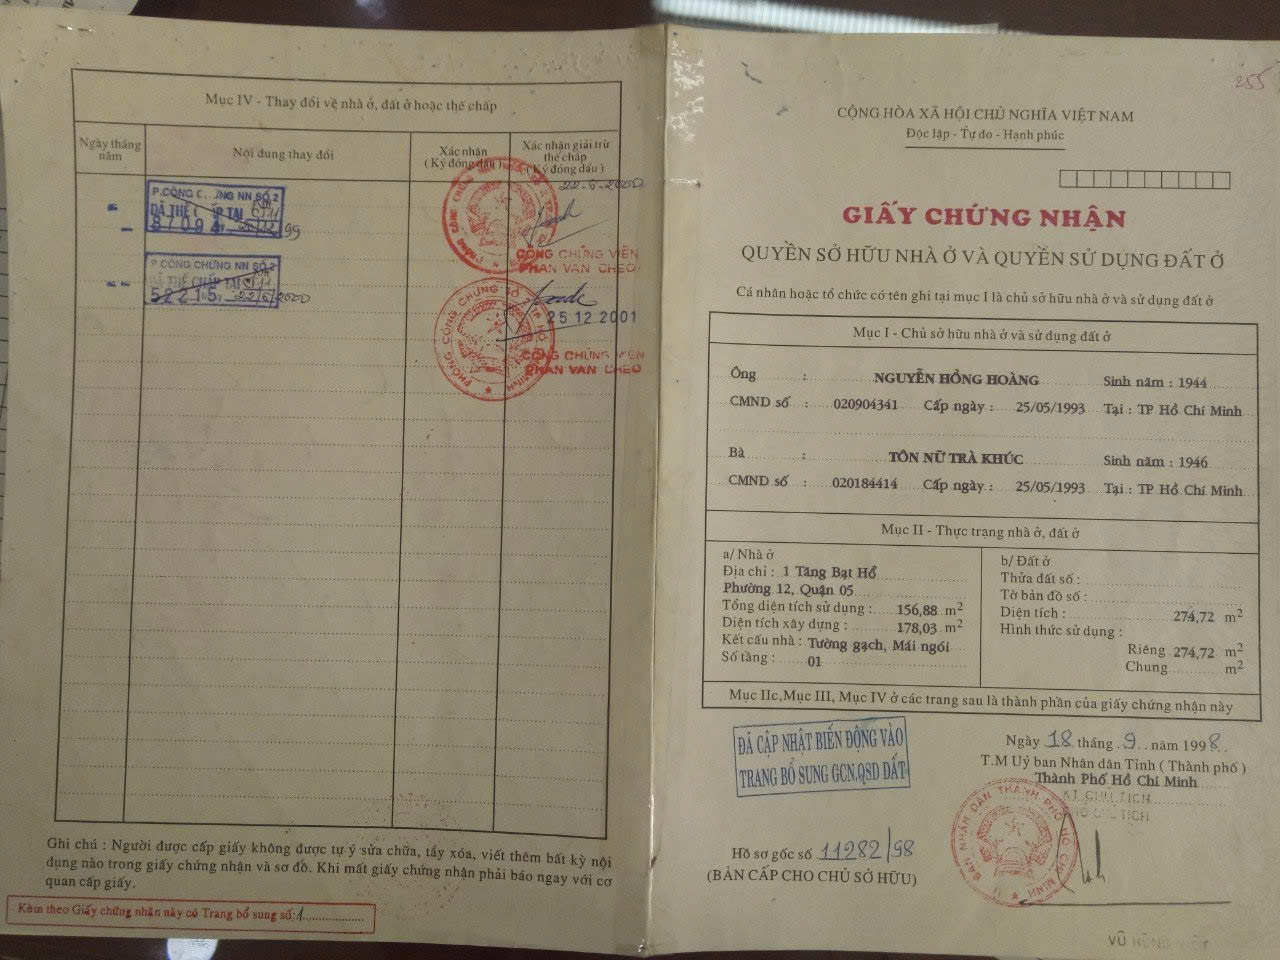 Mục IV - Thay đổi về nhà ở, đất ở hoặc thế chấp
Ngày tháng năm
Nội dung thay đổi
Xác nhận (Ký đóng dấu)
Xác nhận giải trừ thế chấp (Ký đóng dấu)
P.CÔNG CHỨNG NN SỐ 2
ĐÃ THẾ CHẤP TẠI
87094
99
22-6-2000
CÔNG CHỨNG VIÊN
PHAN VAN CHEO
P CÔNG CHỨNG NN SỐ 2
ĐÃ THẾ CHẤP TẠI
52215 22/6/2000
25 12 2001
CÔNG CHỨNG VIÊN
PHAN VAN CHEO
PHÒNG CÔNG CHỨNG SỐ 2 TP HỒ CHÍ MINH
Ghi chú : Người được cấp giấy không được tự ý sửa chữa, tẩy xóa, viết thêm bất kỳ nội
dung nào trong giấy chứng nhận và sơ đồ. Khi mất giấy chứng nhận phải báo ngay với cơ
quan cấp giấy.
Kèm theo Giấy chứng nhận này có Trang bổ sung số: 1
255
CỘNG HÒA XÃ HỘI CHỦ NGHĨA VIỆT NAM
Độc lập - Tự do - Hạnh phúc
GIẤY CHỨNG NHẬN
QUYỀN SỞ HỮU NHÀ Ở VÀ QUYỀN SỬ DỤNG ĐẤT Ở
Cá nhân hoặc tổ chức có tên ghi tại mục I là chủ sở hữu nhà ở và sử dụng đất ở
Mục I - Chủ sở hữu nhà ở và sử dụng đất ở
Ông : NGUYỄN HỒNG HOÀNG Sinh năm : 1944
CMND số : 020904341 Cấp ngày : 25/05/1993 Tại : TP Hồ Chí Minh
Bà : TÔN NỮ TRÀ KHÚC Sinh năm : 1946
CMND số : 020184414 Cấp ngày : 25/05/1993 Tại : TP Hồ Chí Minh
Mục II - Thực trạng nhà ở, đất ở
a/ Nhà ở
Địa chỉ : 1 Tăng Bạt Hổ
Phường 12, Quận 05
Tổng diện tích sử dụng : 156,88 m2
Diện tích xây dựng : 178,03 m2
Kết cấu nhà : Tường gạch, Mái ngói
Số tầng : 01
b/ Đất ở
Thửa đất số :
Tờ bản đồ số :
Diện tích : 274,72 m2
Hình thức sử dụng :
Riêng 274,72 m2
Chung m2
Mục IIc,Mục III, Mục IV ở các trang sau là thành phần của giấy chứng nhận này
ĐÃ CẬP NHẬT BIẾN ĐỘNG VÀO
TRANG BỔ SUNG GCN.QSD ĐẤT
Ngày 18 tháng 9 năm 1998
T.M Uỷ ban Nhân dân Tỉnh ( Thành phố )
Thành Phố Hồ Chí Minh
KT CHỦ TỊCH
PHÓ CHỦ TỊCH
Hồ sơ gốc số 11282/98
(BẢN CẤP CHO CHỦ SỞ HỮU)
BAN NHÂN DÂN THÀNH PHỐ HỒ CHÍ MINH
VŨ HÙNG VIỆT